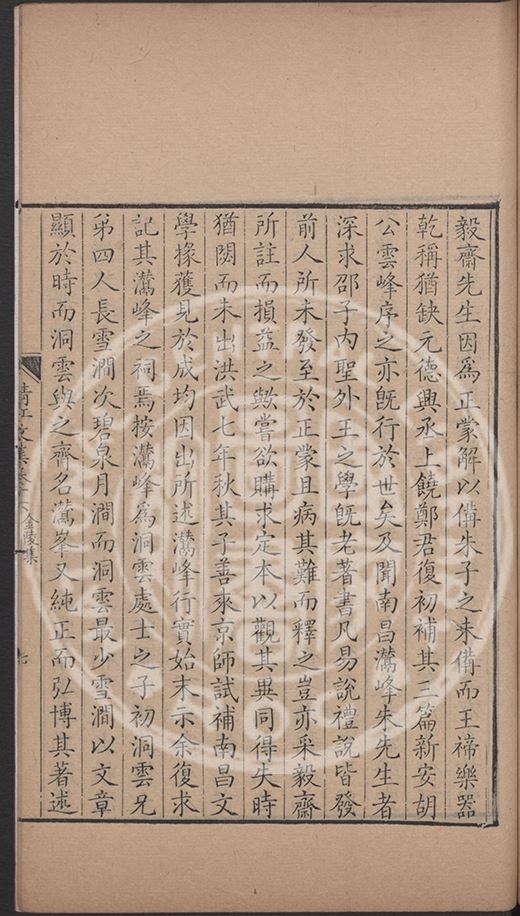 毅齋先生因爲正蒙解以備朱子之未備而王禘樂器
乾稱猶缺元德興丞上饒鄭君復初補其三篇新安胡
公雲峰序之亦旣行於世矣及聞南昌灊峰朱先生者
深求邵子内聖外王之學旣老著書凡易說禮說皆發
前人所未發至於正蒙且病其難而釋之豈亦采毅齋
所註而損益之歟嘗欲購求定本以觀其異同得失時
猶閟而未出洪武七年秋其子善來京師試補南昌文
學掾獲見於成均因出所述灊峰行實始末示余復求
記其灊峰之祠焉按灊峰爲洞雲處士之子初洞雲兄
弟四人長雪澗次碧泉月澗而洞雲最少雪澗以文章
顯於時而洞雲與之齊名灊峯又純正而弘博其著述
清江文集卷十八金陵集
七